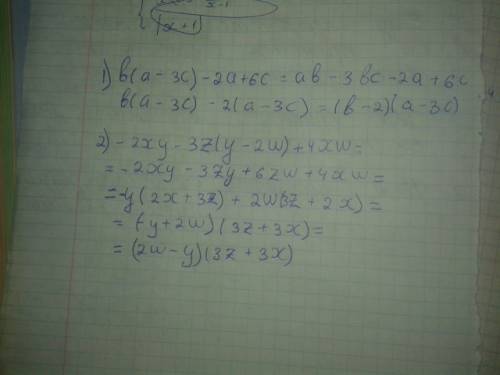 x-1
|x+1|
1) b(a-3c)-2a+6c = ab-3bc-2a+6c
b(a-3c)-2(a-3c)=(b-2)(a-3c)
2) -2xy-3z(y-2w)+4xw=
=-2xy-3zy+6zw+4xw=
=-y(2x+3z)+2w(3z+2x)=
=(-y+2w)(3z+3x)=
=(2w-y)(3z+3x)